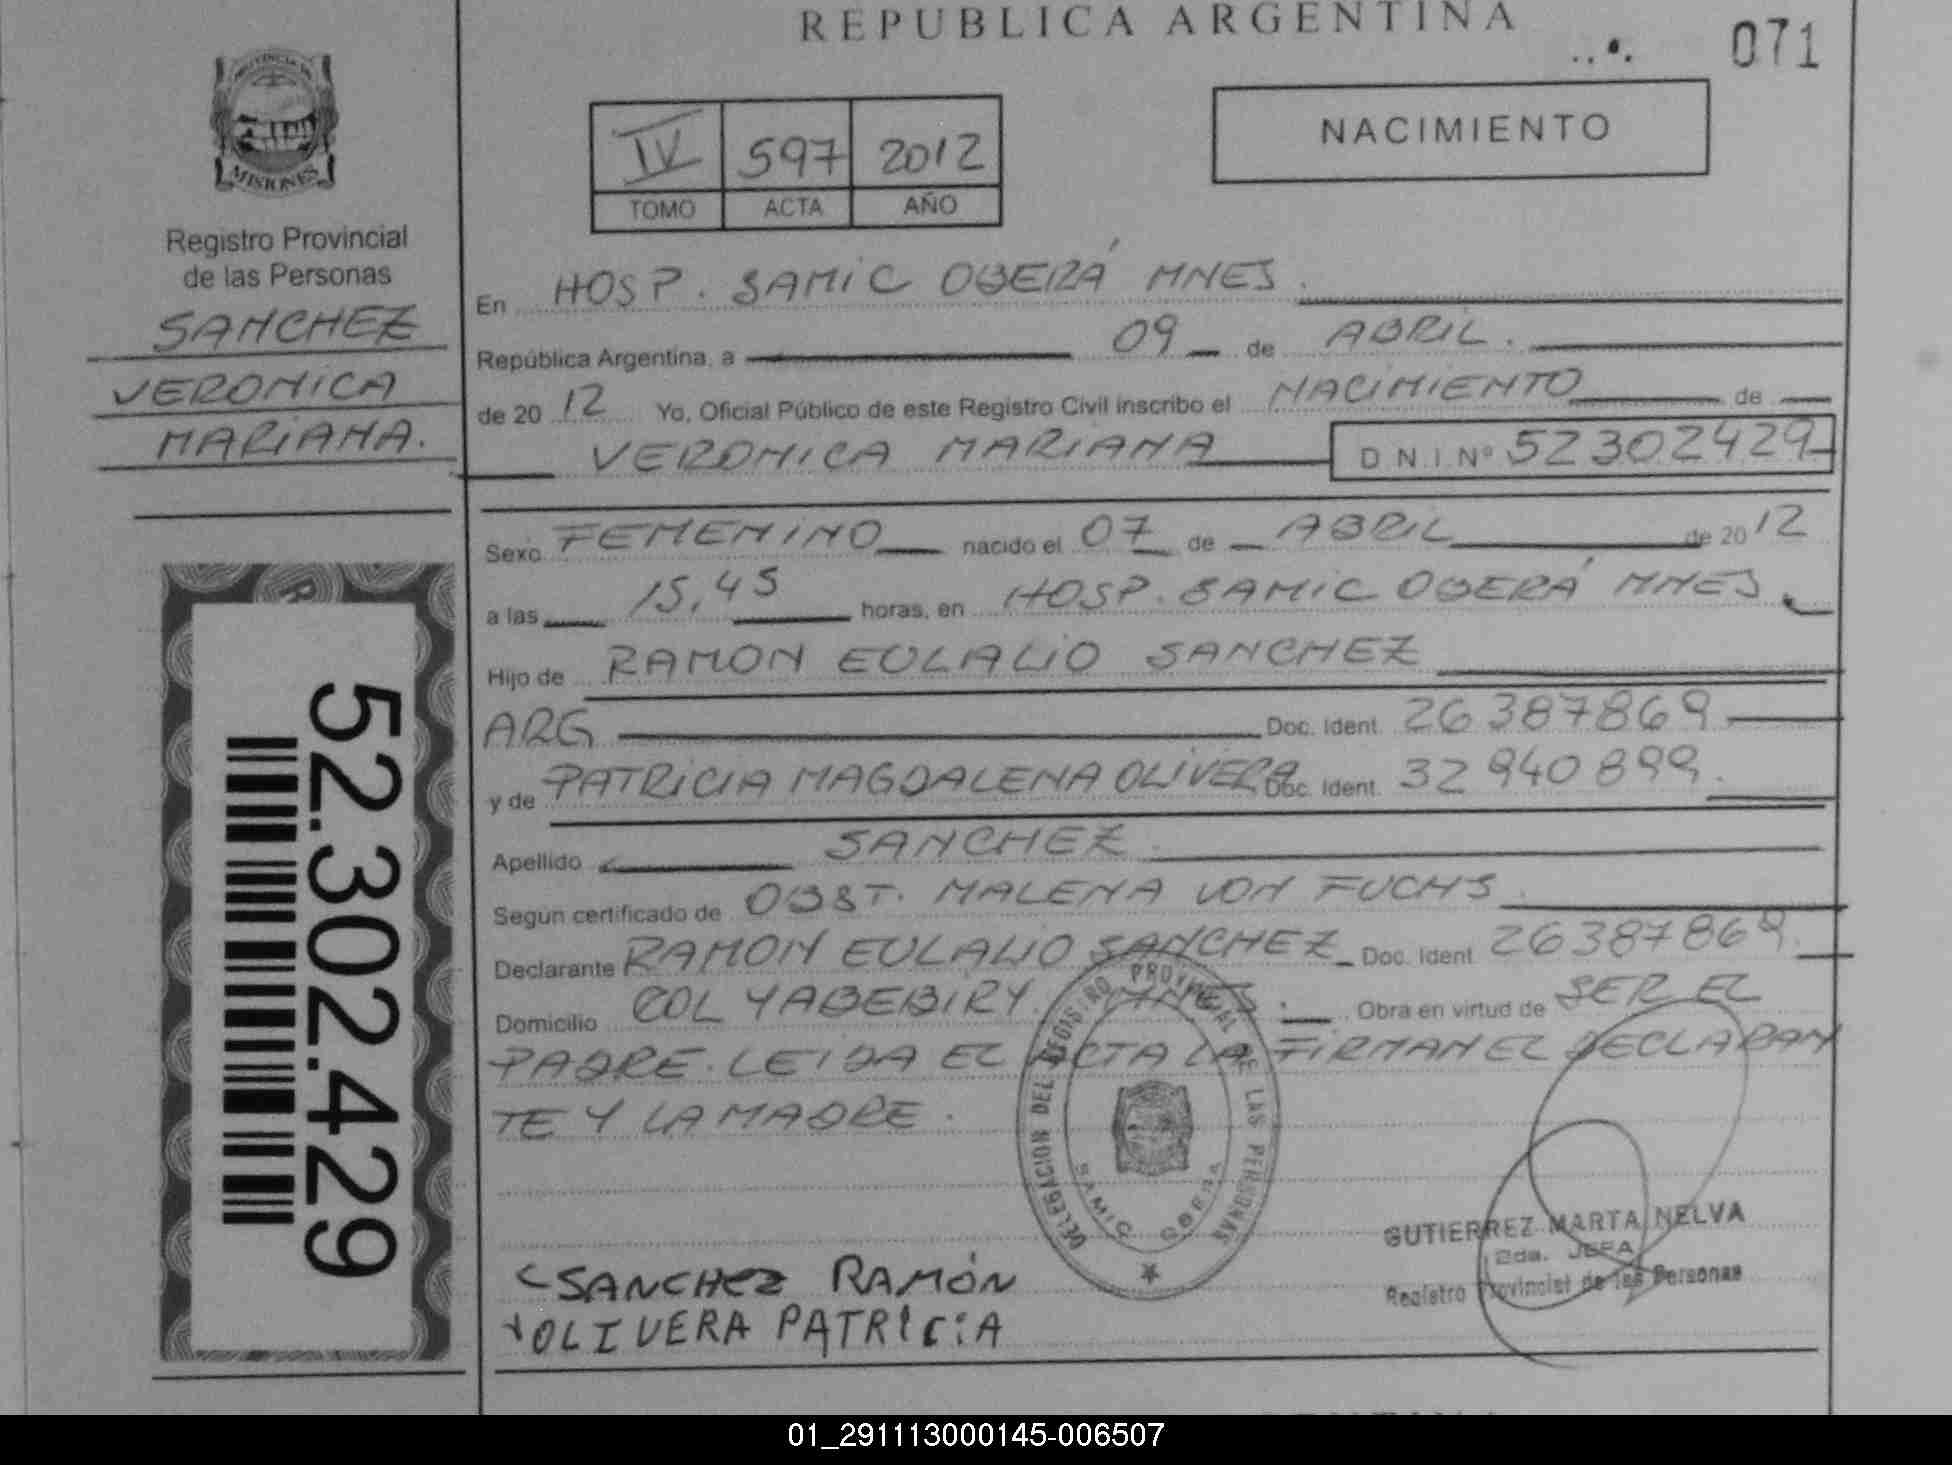 REPUBLICA ARGENTINA
071
PROVINCIA DE
MISIONES
Registro Provincial
de las Personas
SANCHEZ
VERONICA
MARIANA.
52.302.429
IV 597 2012
TOMO ACTA AÑO
NACIMIENTO
En HOSP. SAMIC OBERÁ MNES.
República Argentina, a 09 de ABRIL.
de 20 12 Yo, Oficial Público de este Registro Civil inscribo el NACIMIENTO de
VERONICA MARIANA D N I Nº 52302429
Sexo FEMENINO nacido el 07 de ABRIL de 20 12
a las 15,45 horas, en HOSP. SAMIC OBERÁ MNES.
Hijo de RAMON EULALIO SANCHEZ
ARG Doc. Ident. 26387869
y de PATRICIA MAGDALENA OLIVERA Doc. Ident. 32940899.
Apellido SANCHEZ
Según certificado de OBST. MALENA VON FUCHS.
Declarante RAMON EULALIO SANCHEZ Doc. Ident 26387869.
Domicilio COL YABEBIRY. MNES. Obra en virtud de SER EL
PADRE. LEIDA EL ACTA LA FIRMAN EL DECLARAN
TE Y LA MADRE.
DELEGACION DEL REGISTRO PROVINCIAL DE LAS PERSONAS
SAMIC OBERA
GUTIERREZ MARTA NELVA
2da. JEFA
Registro Provincial de las Personas
SANCHEZ RAMÓN
OLIVERA PATRICIA
01_291113000145-006507